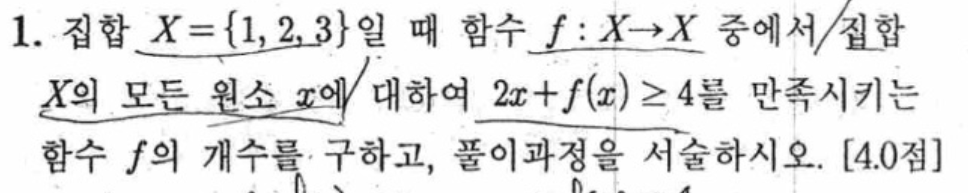 1. 집합 X={1, 2, 3}일 때 함수 f : X→X 중에서 집합
X의 모든 원소 x에 대하여 2x+f(x)≥4를 만족시키는
함수 f의 개수를 구하고, 풀이과정을 서술하시오. [4.0점]